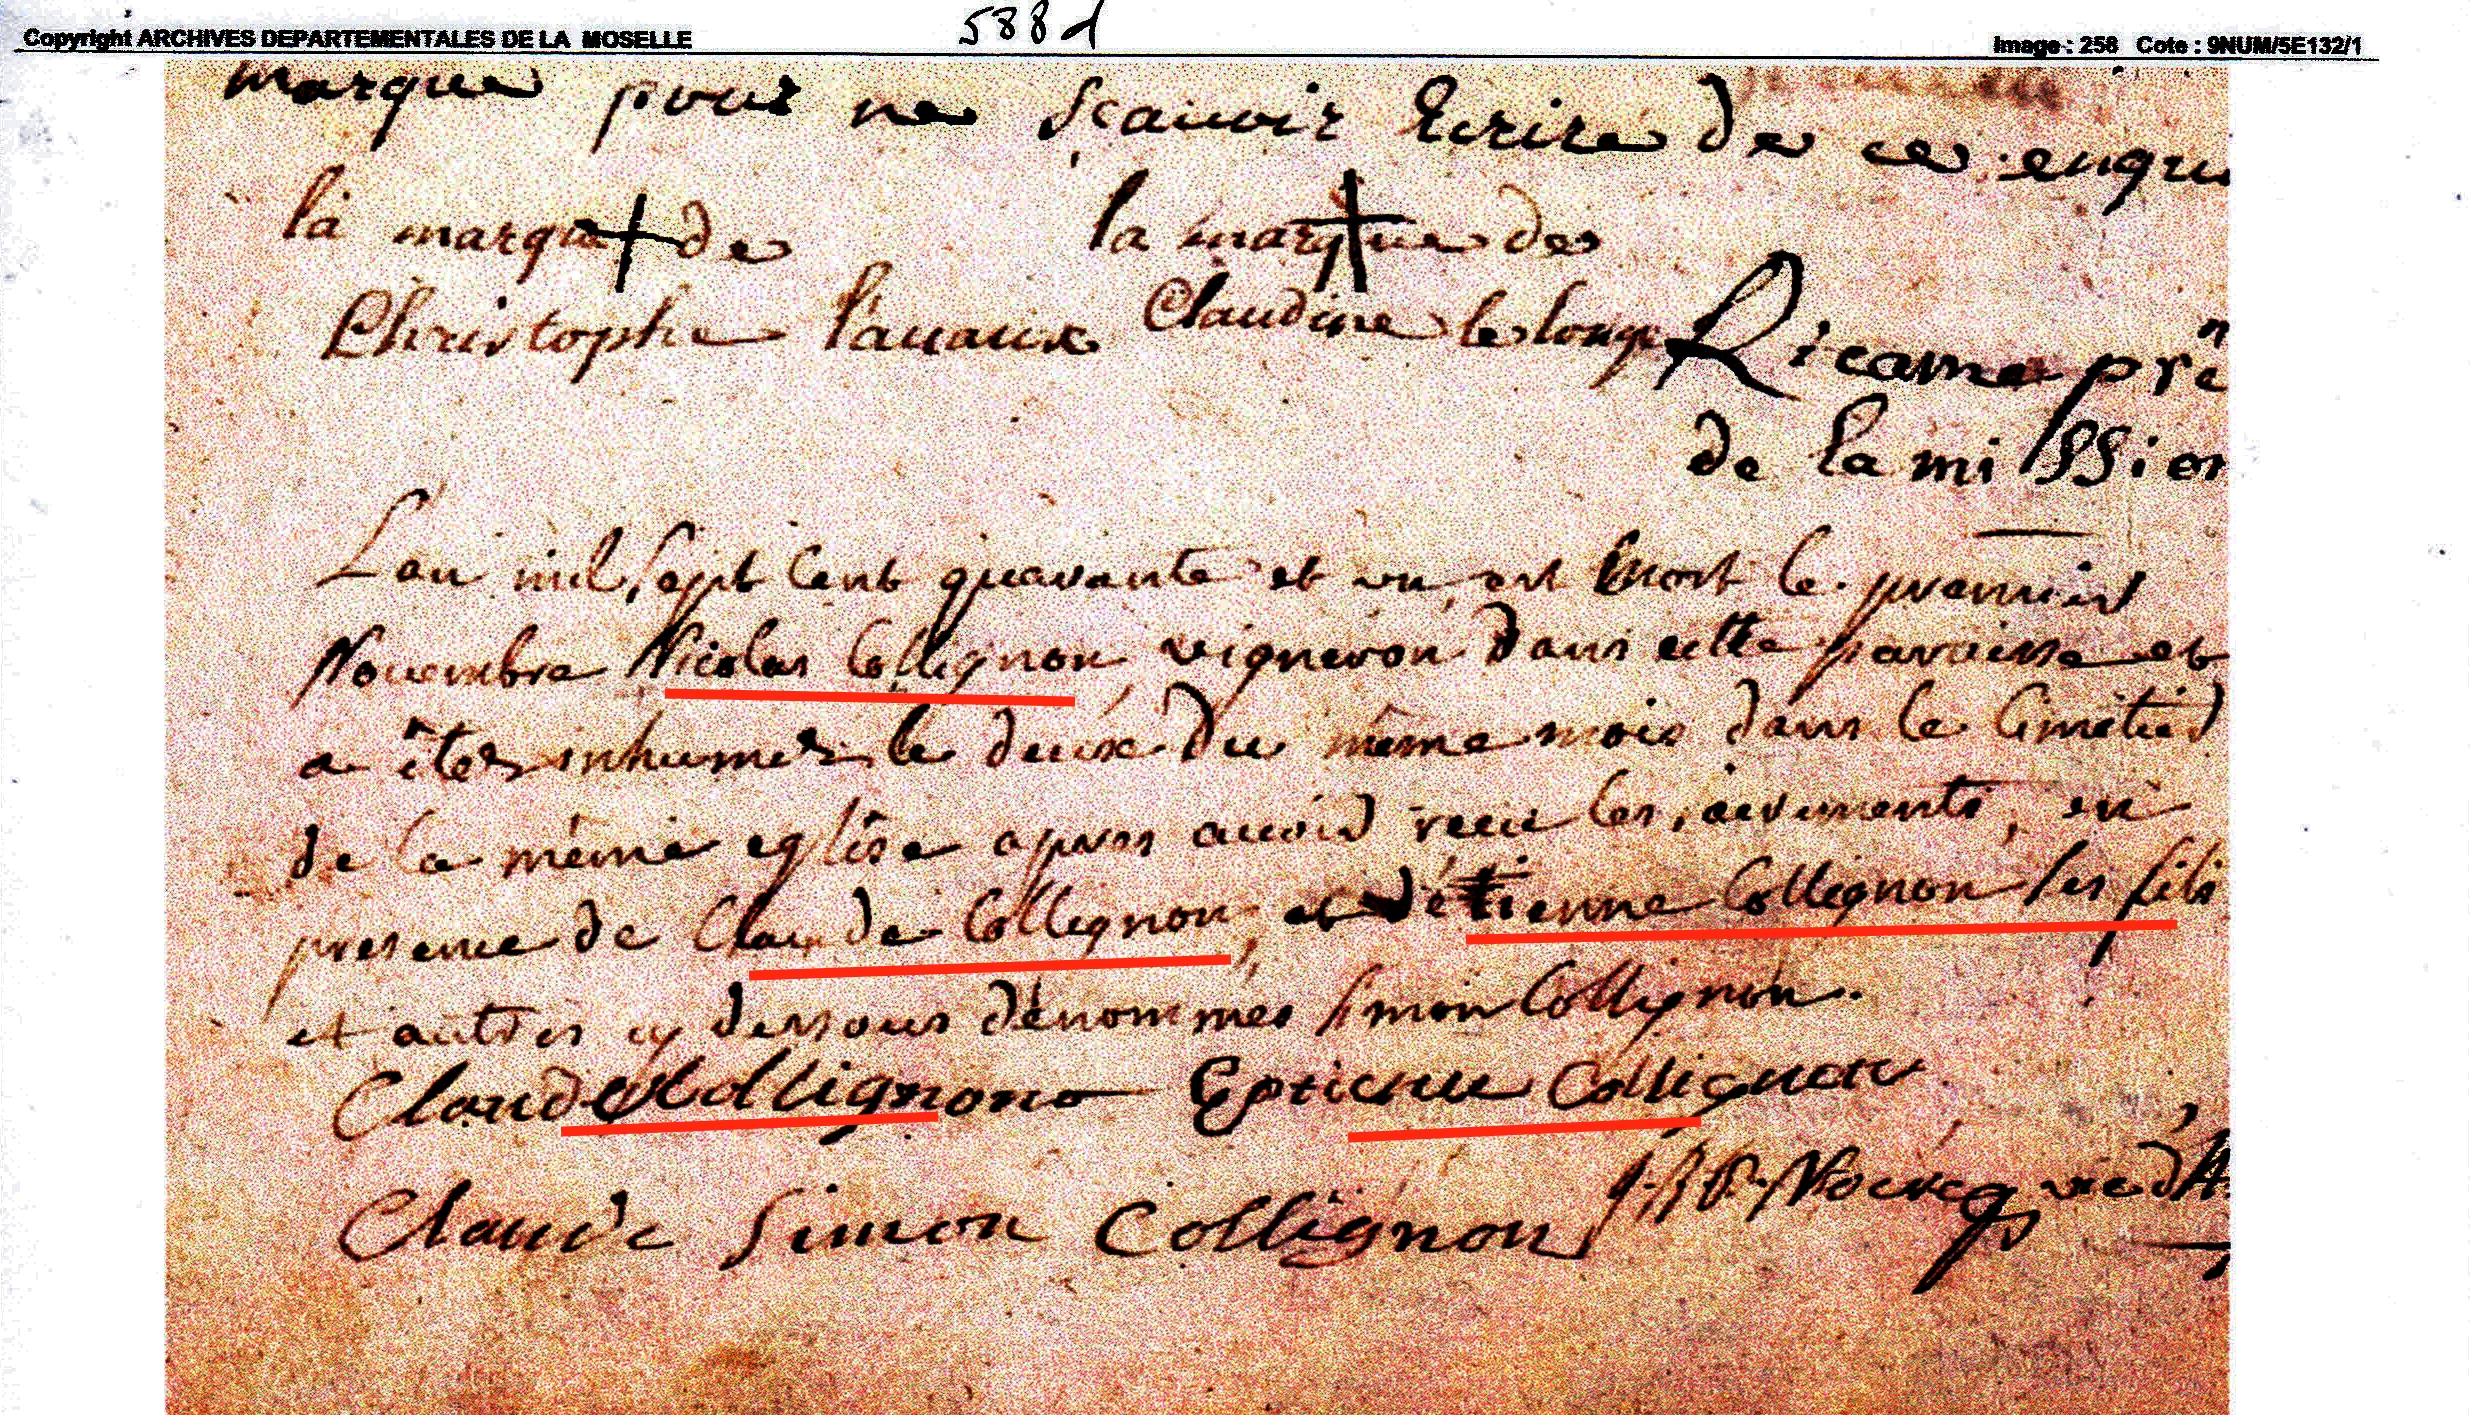 Copyright ARCHIVES DEPARTEMENTALES DE LA MOSELLE
588 d
Image : 258 Cote : 9NUM/5E132/1
marque pour ne scauoir Ecrire de ce enqui
la marque de
la marque de
Christophe Lauaux
Claudine le longe
Ricame pre
de la mission
Lan mil sept cent quarante et un est mort le premier
Nouembre Nicolas Collignon vigneron dans cette paroisse et
a êtes inhumer le deux du même mois dans le Cimétier
de la même eglise apres auoir receu les sacrements, en
presence de Claude Collignon, et détienne Collignon ses fils
et autres cy dessous dénommés Simon Collignon.
Claude Collignon Estienne Collignon
Claude Simon Collignon